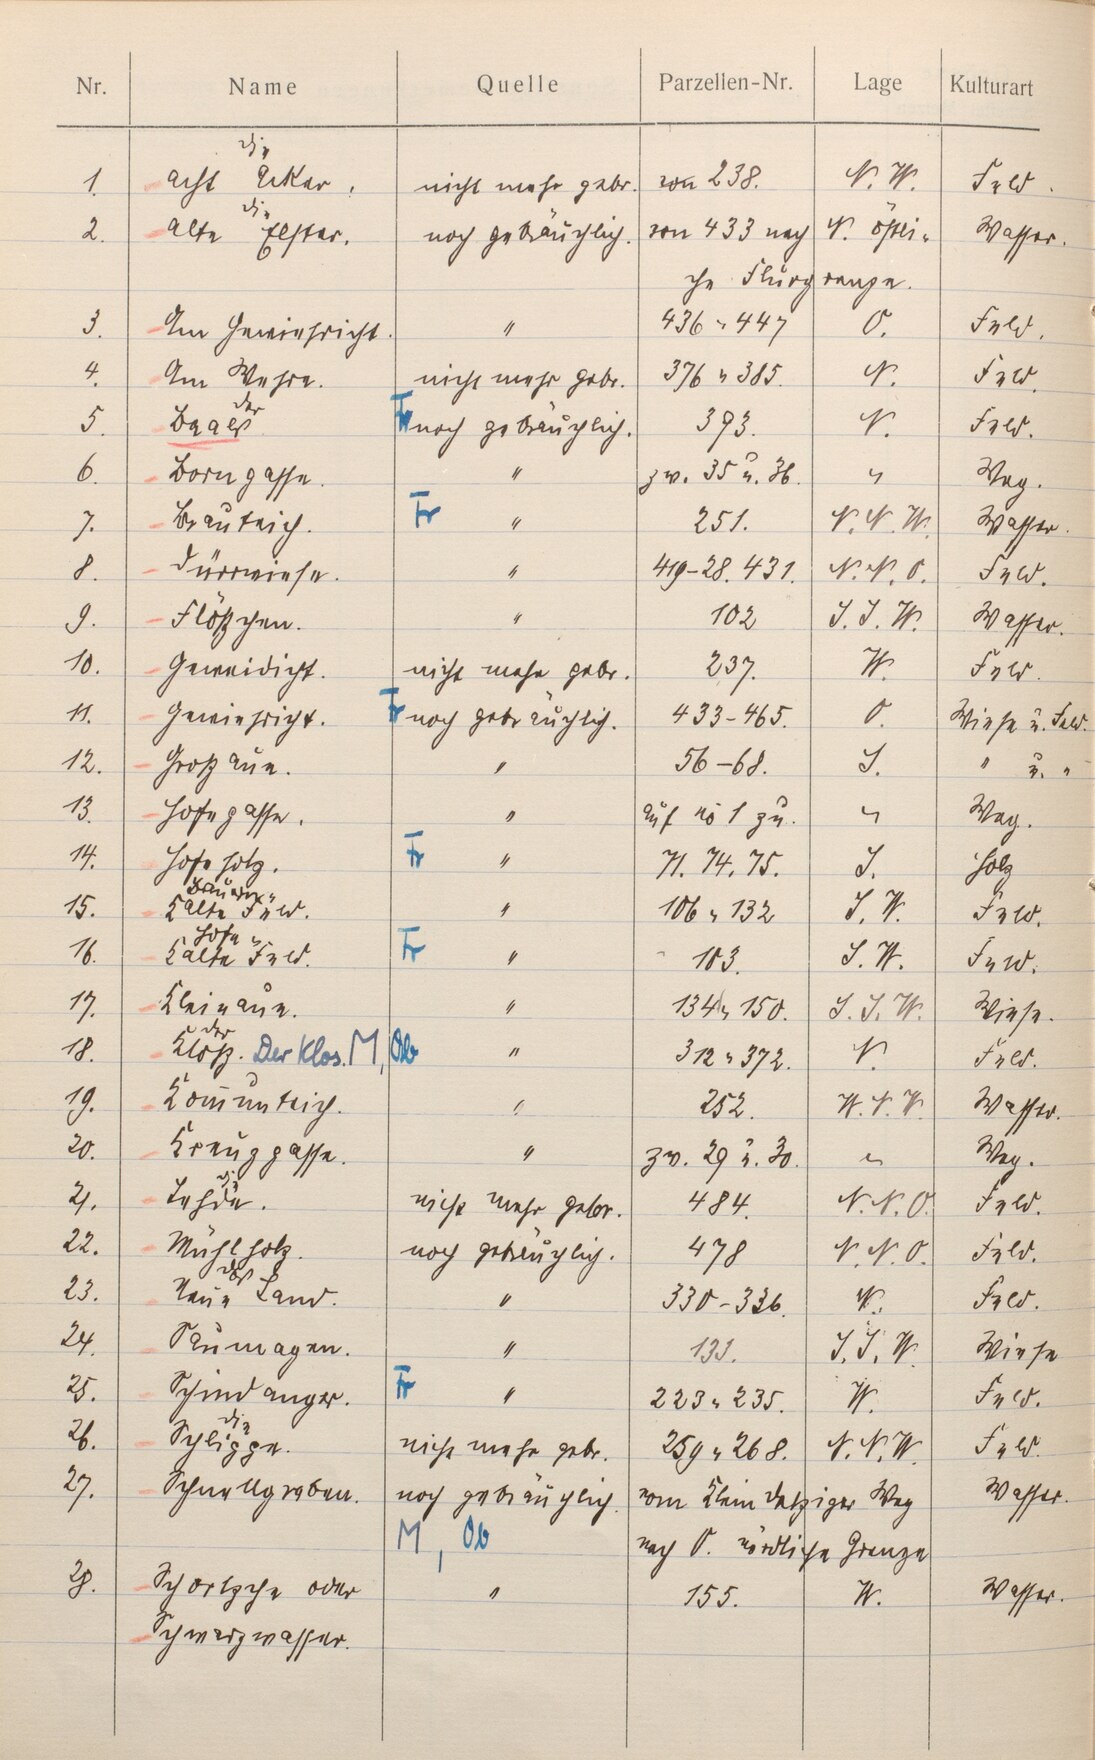 Nr. Name Quelle Parzellen-Nr. Lage Kulturart
die
1. Acht Äcker. nicht mehr gebr. von 238. N. W. Feld.
die
2. Alte Elster. noch gebräuchlich. von 433 nach N. östli-
Wasser.
che Flurgrenze.
3. Am Gewiehricht. " 436 u 447 O. Feld.
4. Am Wehre. nicht mehr gebr. 376 u 385. N. Feld.
der
5. Baals Fr noch gebräuchlich. 393. N. Feld.
6. Borngasse. " zw. 35 u. 36. " Weg.
7. Brauteich. Fr " 251. N. N. W. Wasser.
8. Dürrwiese. " 419-28. 431. N. N. O. Feld.
9. Flößchen. " 102 S. S. W. Wasser.
10. Geweidicht. nicht mehr gebr. 237. W. Feld.
11. Gewiehricht. Fr noch gebräuchlich. 433-465. O. Wiese u. Feld.
12. Großaue. " 56-68. S. " u. "
13. Hofegasse. " auf No 1 zu. " Weg.
14. Hofeholz. Fr " 71. 74. 75. S. Holz
Bauern-
15. Kalte Feld. " 106 u 132 S. W. Feld.
Hofe-
16. Kalte Feld. Fr " 103. S. W. Feld.
17. Kleinaue. " 134 u 150. S. S. W. Wiese.
der
18. Kloß. Der Klos. M, Ob " 312 u 372. N. Feld.
19. Kom̅unteich. " 252. W. N. W. Wasser.
20. Kreuzgasse. " zw. 29 u. 30. " Weg.
die
21. Lehde. nicht mehr gebr. 484. N. N. O. Feld.
22. Mühlholz. noch gebräuchlich. 478 N. N. O. Feld.
das
23. Neue Land. " 330-336. N. Feld.
24. Saumagen. " 133. S. S. W. Wiese
25. Schindanger. Fr " 223 u 235. W. Feld.
die
26. Schlippe. nicht mehr gebr. 259 u 268. N. N. W. Feld.
27. Schnellgraben. noch gebräuchlich. vom Klein Weg Wasser.
M, Ob nach O. nördliche Grenze
28. Schortzche oder " 155. W. Wasser.
Schwarzwasser.